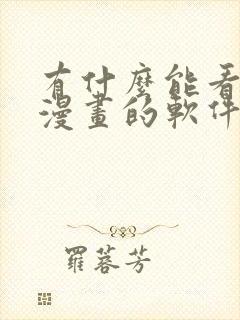 有什麼能看
漫畫的軟件
羅蓉芳